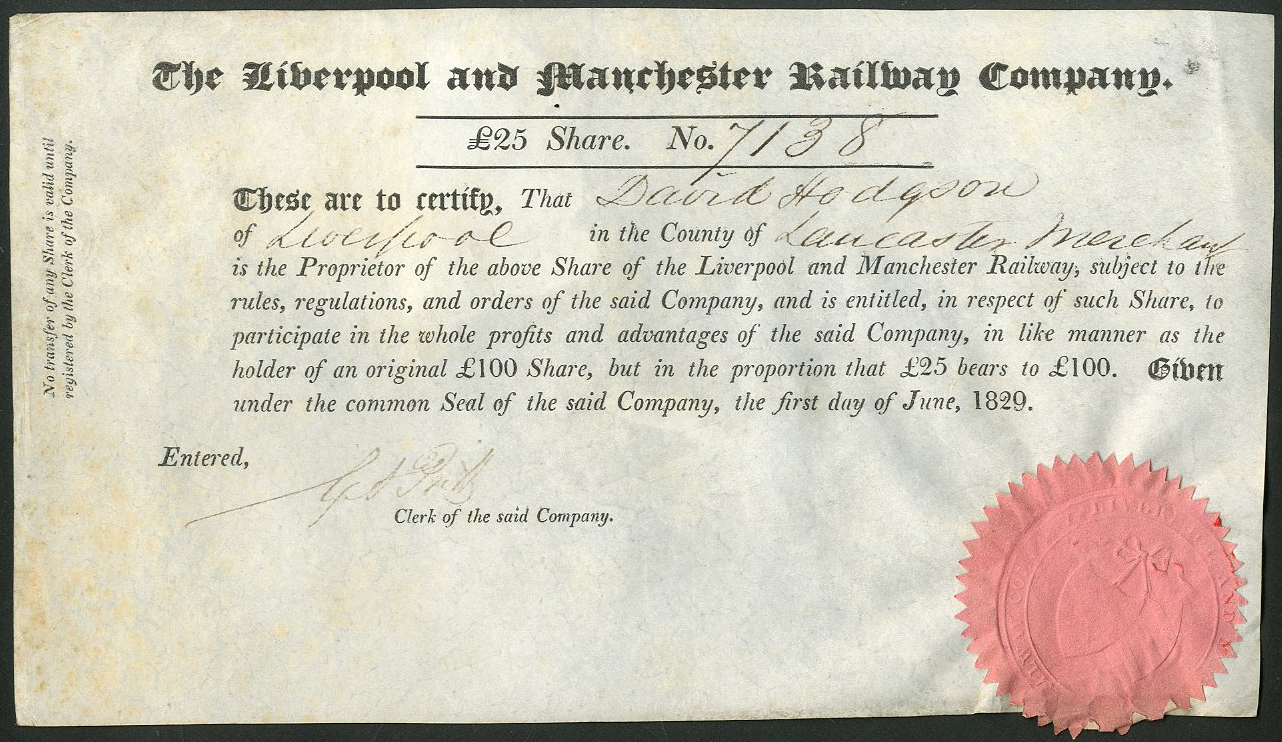 The Liverpool and Manchester Railway Company.
£25 Share. No. 7138
These are to certify, That David Hodgson
of Liverpool in the County of Lancaster Merchant
is the Proprietor of the above Share of the Liverpool and Manchester Railway, subject to the
rules, regulations, and orders of the said Company, and is entitled, in respect of such Share, to
participate in the whole profits and advantages of the said Company, in like manner as the
holder of an original £100 Share, but in the proportion that £25 bears to £100. Given
under the common Seal of the said Company, the first day of June, 1829.
Entered,
Clerk of the said Company.
No transfer of any Share is valid until
registered by the Clerk of the Company.